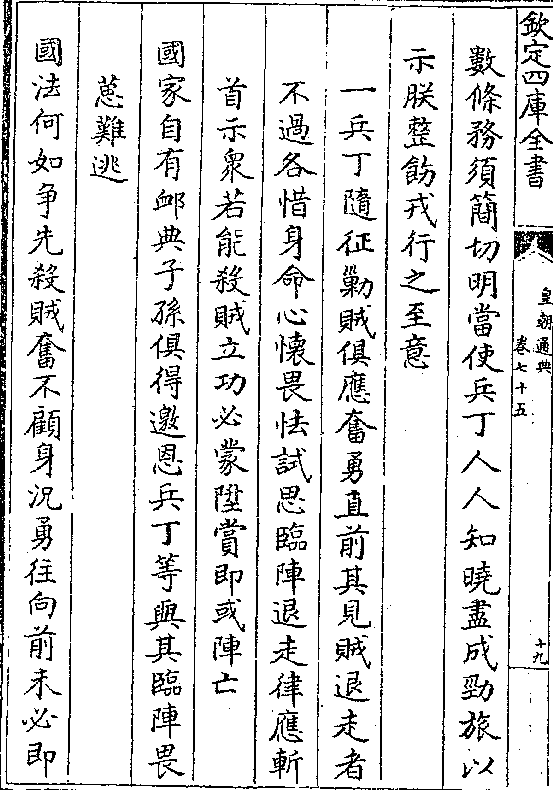 欽定四庫全書
皇朝通典
卷七十五
十九
數條務須簡切明當使兵丁人人知曉盡成勁旅以
示朕整飭戎行之至意
一兵丁隨征勦賊俱應奮勇直前其見賊退走者
不過各惜身命心懷畏怯試思臨陣退走律應斬
首示衆若能殺賊立功必蒙陞賞即或陣亡
國家自有卹典子孫俱得邀恩兵丁等與其臨陣畏
葸難逃
國法何如争先殺賊奮不顧身況勇往向前未必即